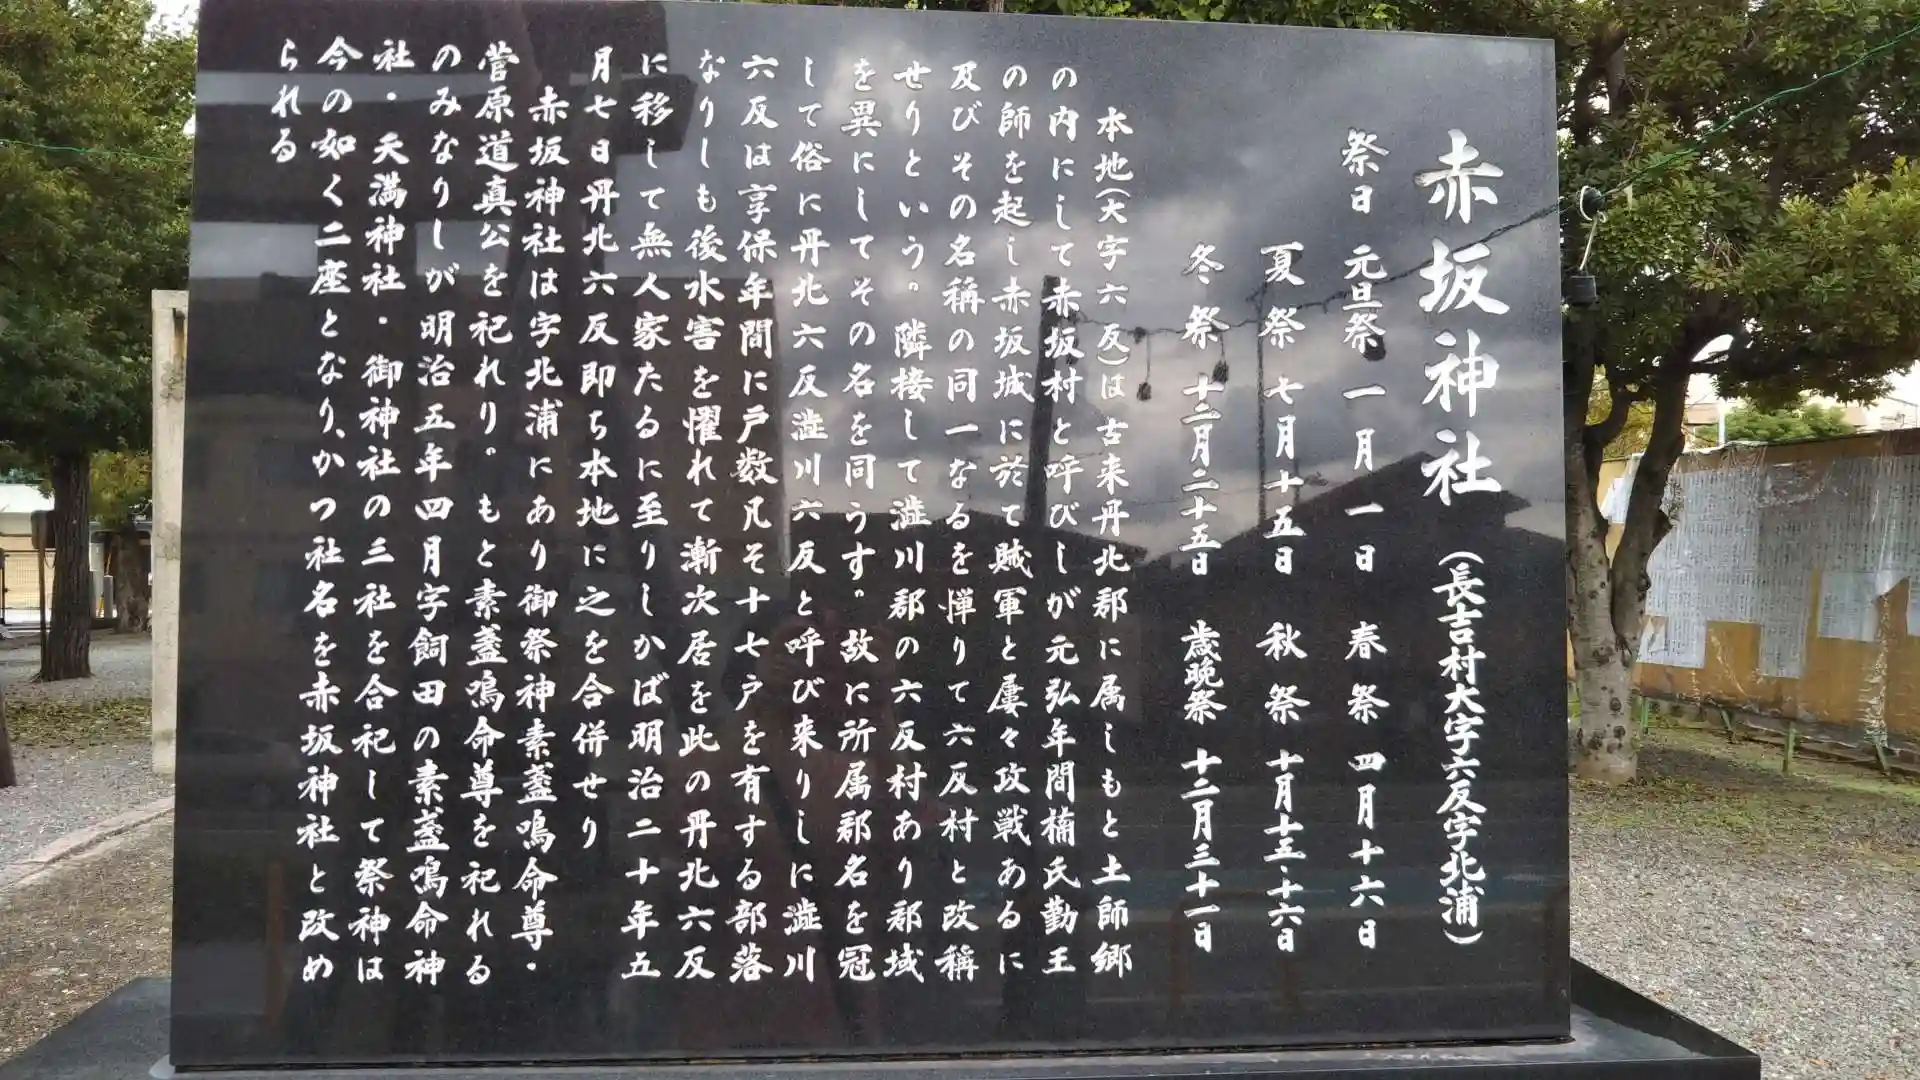 赤坂神社 （長吉村大字六反字北浦）
祭日 元旦祭 一月一日 春祭 四月十六日
夏祭 七月十五日 秋祭 十月十五・十六日
冬祭 十二月二十五日 歳晩祭 十二月三十一日
本地（大字六反）は古来丹北郡に属しもと土師郷
の内にして赤坂村と呼びしが元弘年間楠氏勤王
の師を起し赤坂城に於て賊軍と屡々攻戦あるに
及びその名稱の同一なるを憚りて六反村と改稱
せりという。隣接して澁川郡の六反村あり郡域
を異にしてその名を同うす。故に所属郡名を冠
して俗に丹北六反澁川六反と呼び来りしに澁川
六反は享保年間に戸数凡そ十七戸を有する部落
なりしも後水害を懼れて漸次居を此の丹北六反
に移して無人家たるに至りしかば明治二十年五
月七日丹北六反即ち本地に之を合併せり
赤坂神社は字北浦にあり御祭神素盞鳴命尊・
菅原道真公を祀れり。もと素盞鳴命尊を祀れる
のみなりしが明治五年四月字飼田の素盞鳴命神
社・天満神社・御神社の三社を合祀して祭神は
今の如く二座となり、かつ社名を赤坂神社と改め
られる